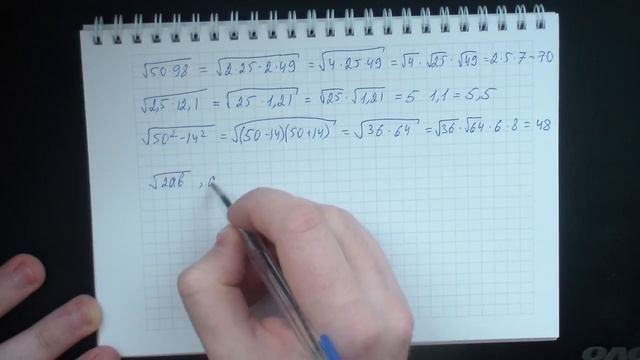 √50·98 = √2·25·2·49 = √4·25·49 = √4 · √25 · √49 = 2·5·7 = 70
√2,5·12,1 = √25·1,21 = √25 · √1,21 = 5 1,1 = 5,5
√50²-14² = √(50-14)(50+14) = √36·64 = √36·√64 · 6·8 = 48
√2ab , a